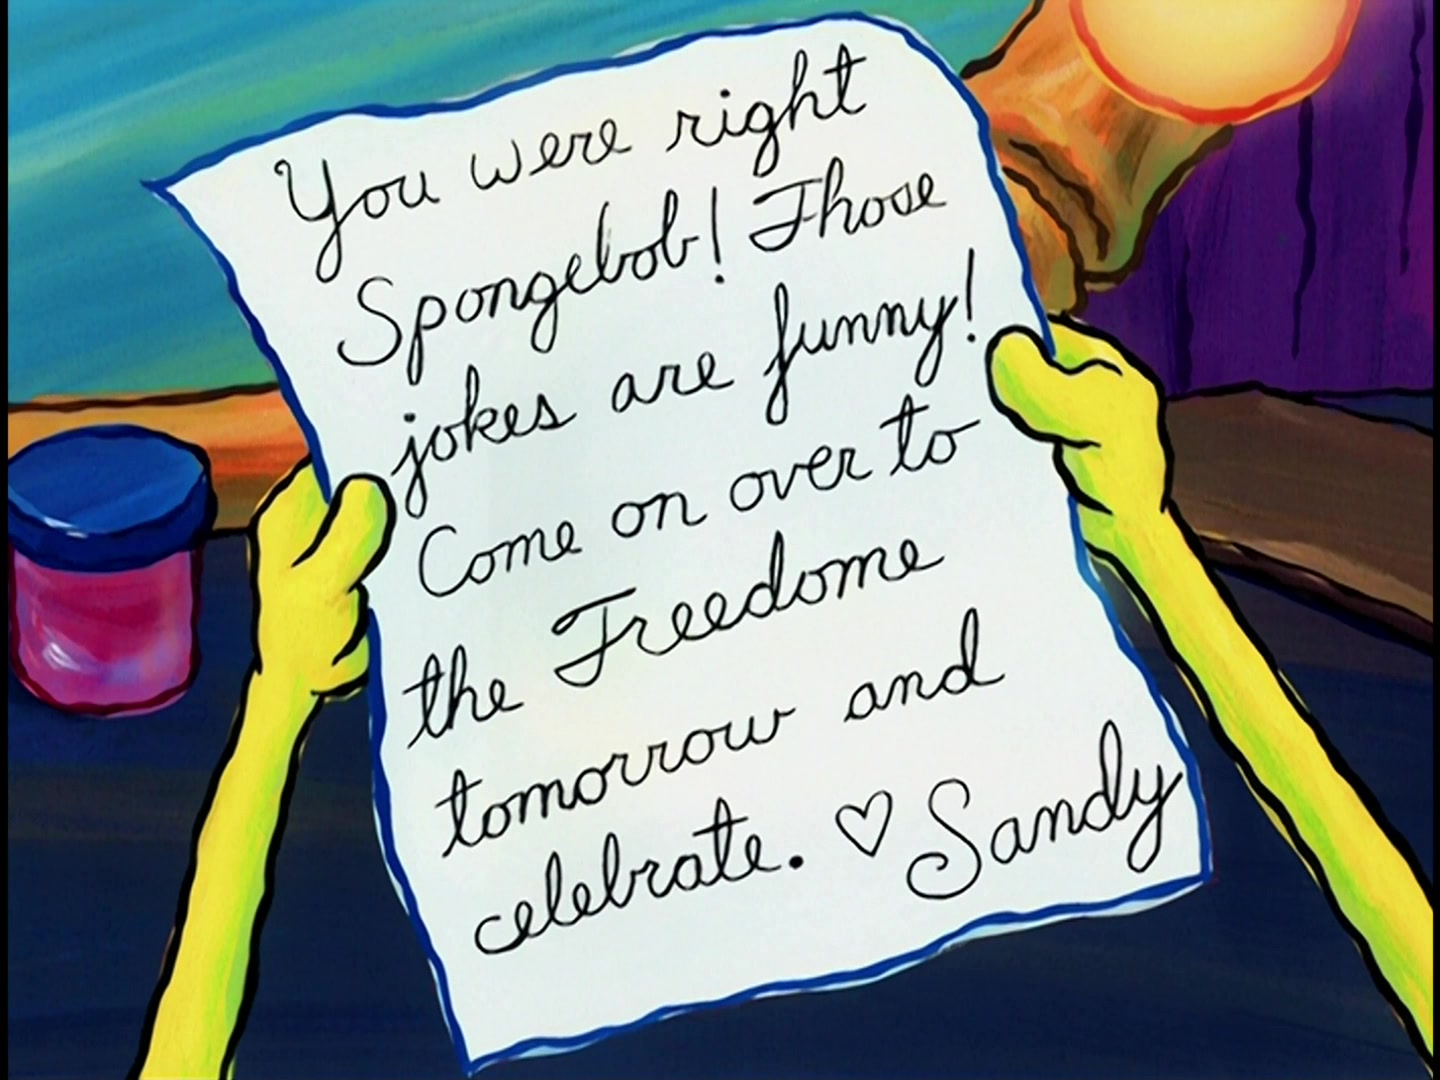 You were right
Spongebob! Those
jokes are funny!
Come on over to
the Freedome
tomorrow and
celebrate. ♡ Sandy